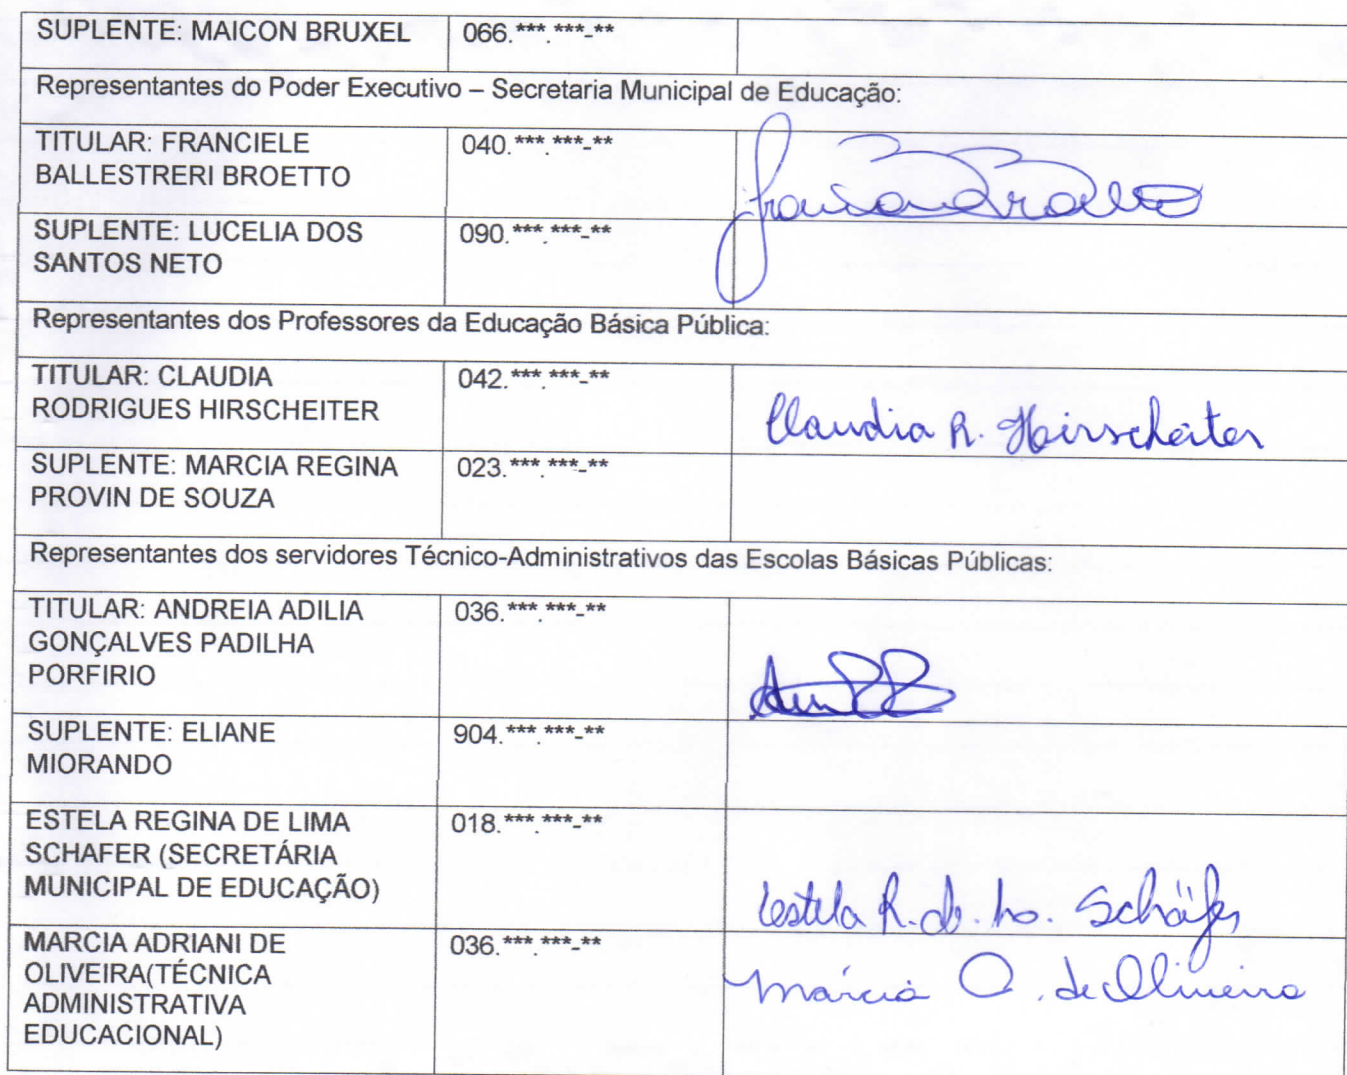 SUPLENTE: MAICON BRUXEL 066.***.***-**
Representantes do Poder Executivo – Secretaria Municipal de Educação:
TITULAR: FRANCIELE 040.***.***-**
BALLESTRERI BROETTO
SUPLENTE: LUCELIA DOS 090.***.***-**
SANTOS NETO
Representantes dos Professores da Educação Básica Pública:
TITULAR: CLAUDIA 042.***.***-**
RODRIGUES HIRSCHEITER
Claudia R. Hirscheiter
SUPLENTE: MARCIA REGINA 023.***.***-**
PROVIN DE SOUZA
Representantes dos servidores Técnico-Administrativos das Escolas Básicas Públicas:
TITULAR: ANDREIA ADILIA 036.***.***-**
GONÇALVES PADILHA
PORFIRIO
SUPLENTE: ELIANE 904.***.***-**
MIORANDO
ESTELA REGINA DE LIMA 018.***.***-**
SCHAFER (SECRETÁRIA
MUNICIPAL DE EDUCAÇÃO)
Estela R. de L. Schäfer
MARCIA ADRIANI DE 036.***.***-**
OLIVEIRA(TÉCNICA
ADMINISTRATIVA
EDUCACIONAL)
Márcia A. de Oliveira